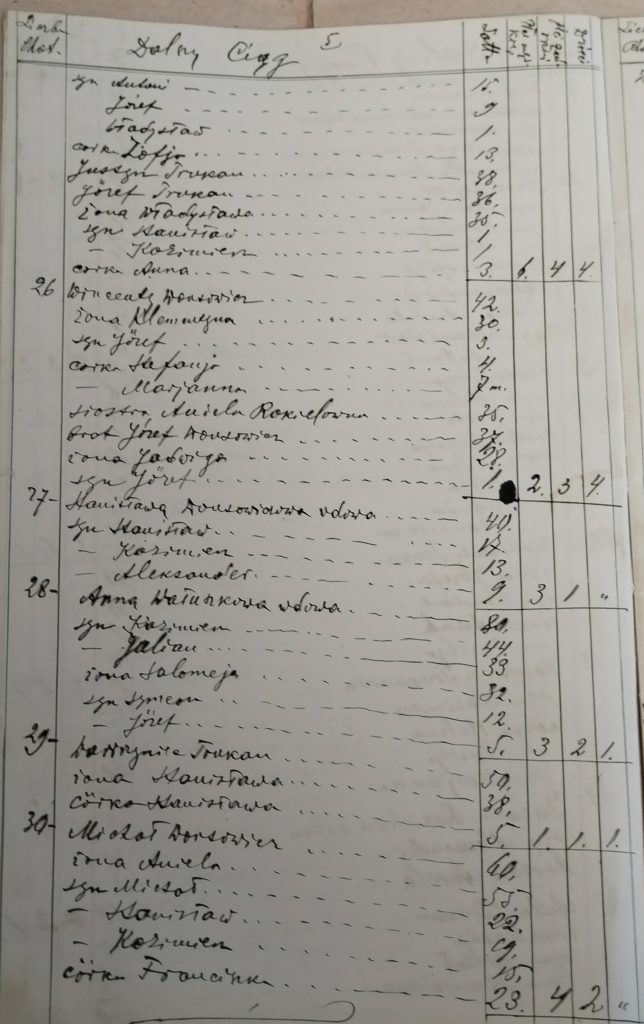 Liczba
Dolny Ciąg 5 Lata Dzieci
syn Antoni 15.
Józef 9
Władysław 1.
córka Zofja 13.
Justyn Trukan 38.
Józef Trukan 36.
żona Władysława 35.
syn Stanisław 1
— Kazimierz 1
córka Anna 3. 6. 4 4.
26 Wincenty 42.
żona 30.
syn Józef 9.
córka Stefanja 4.
— Marjanna 7 m.
siostra Aniela 35.
brat Józef 37.
żona Jadwiga 28.
syn Józef 1. 2. 3 4.
27- Stanisława wdowa 40.
syn Stanisław 17.
— Kazimierz 13.
— Aleksander 9. 3 1 "
28- Anna wdowa 80.
syn Kazimierz 44.
— Julian 33
żona Salomeja 32.
syn Symeon 12.
— Józef 5. 3 2 1.
29- Trukan 50.
żona Stanisława 38.
córka Stanisława 5. 1. 1. 1.
30- Michał 60.
żona Aniela 55.
syn Michał 22.
— Stanisław 19.
— Kazimierz 15.
córka Franciszka 23. 4 2 "